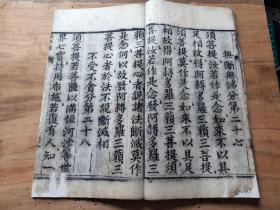 無斷無滅分第二十七
須菩提汝若作是念如來不以具
足相故得阿耨多羅三藐三菩提
須菩提莫作是念如來不以具足
相故得阿耨多羅三藐三菩提須
菩提汝若作是念發阿耨多羅三
藐三菩提心者說諸法斷滅莫作
是念何以故發阿耨多羅三藐三
菩提心者於法不說斷滅相
不受不貪分第二十八
須菩提若菩薩以滿恒河沙等世
界七寶持用布施若復有人知一